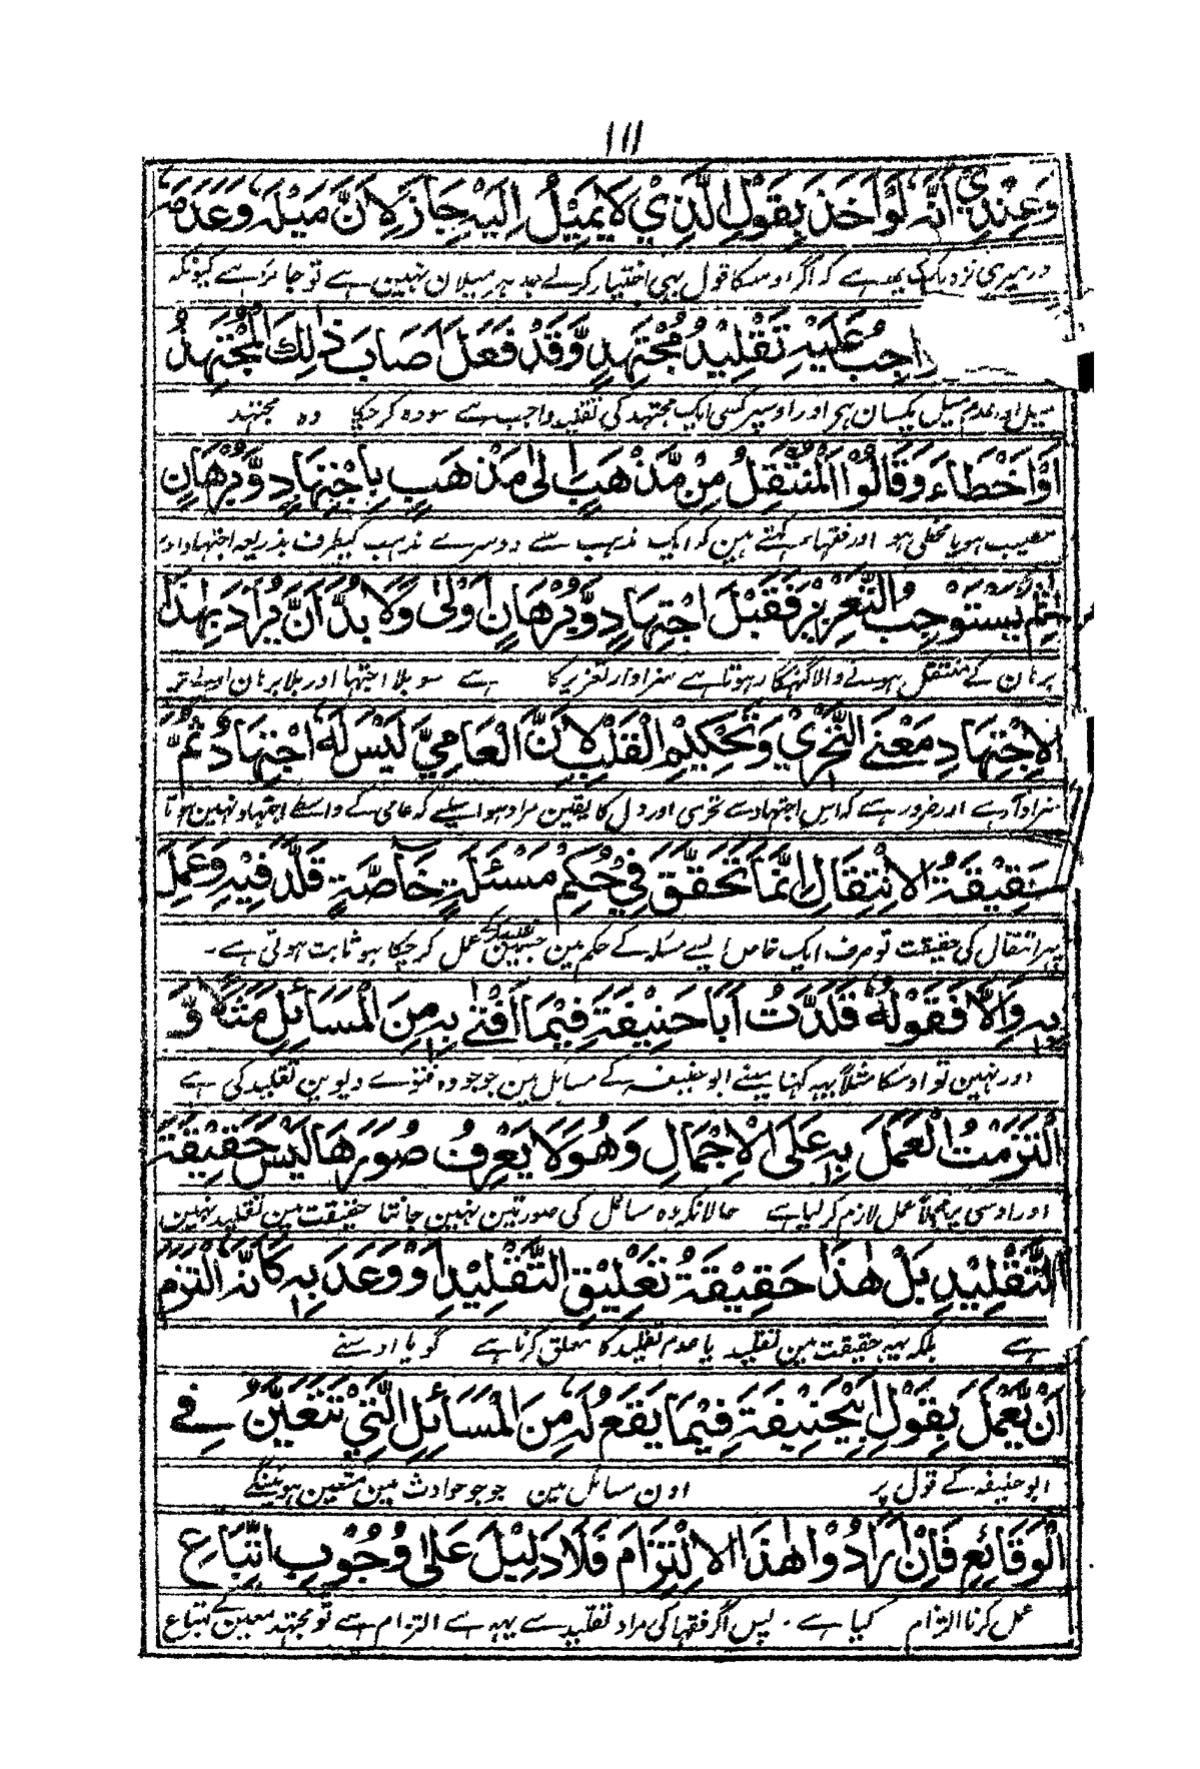 ۱۱۱
وَعِنْدِيْ اَنَّهٗ لَوْ اَخَذَ بِقَوْلِ الَّذِيْ لَا يَمِيْلُ اِلَيْهِ جَازَ لِاَنَّ مَيْلَهٗ وَعَدَمَهٗ
اور میری نزدیک یہہ ہے کہ اگر اوسکا قول بہی اختیار کرلے جدہر میلان نہین ہے تو جائز ہے کیونکہ
وَاجِبُ عَلَيْهِ تَقْلِيْدُ مُجْتَهِدٍ وَّقَدْ فَعَلَ اَصَابَ ذٰلِكَ الْمُجْتَهِدُ
میل اور عدم میل یکسان ہر اور اوسپر کسی ایک مجتہد کی تقلید واجب ہے سو وہ کر چکا وہ مجتہد
اَوْ اَخْطَاءَ وَقَالُوْا الْمُنْتَقِلُ مِنْ مَّذْهَبٍ اِلٰى مَذْهَبٍ بِاِجْتِهَادٍ وَّبُرْهَانٍ
مصیب ہو یا مخطی ہو اور فقہا کہتے ہین کہ ایک مذہب سے دوسرے مذہب کیطرف بذریعہ اجتہاد اور
اٰثِمٌ يَسْتَوْجِبُ التَّعْزِيْرَ فَقَبْلَ اجْتِهَادٍ وَّبُرْهَانٍ اَوْلٰى وَلَا بُدَّ اَنْ يُّرَادَ بِهٰذَا
برہان کے منتقل ہونے والا گنہگار ہوتا ہے سزاوار تعزیر کا ہے سو بلا اجتہاد اور بلا برہان اولے تر
الْاِجْتِهَادِ مَعْنَى التَّحَرِّيْ وَتَحْكِيْمِ الْقَلْبِ لِاَنَّ الْعَامِيَّ لَيْسَ لَهٗ اجْتِهَادٌ ثُمَّ
سزاوار ہے اور ضرور ہے کہ اس اجتہاد سے تحری اور دل کا یقین مراد ہو اسلیے کہ عامی کے واسطے اجتہاد نہین ہوتا
حَقِيْقَةُ الْاِنْتِقَالِ اِنَّمَا تَحَقَّقَ فِيْ حُكْمِ مَسْئَلَةٍ خَاصَّةٍ قَلَّدَ فِيْهِ وَعَمِلَ
پہر انتقال کی حقیقت تو صرف ایک خاص ایسے مسئلہ کے حکم مین جسمین تقلید کے عمل کر چکا ہو ثابت ہوتی ہے۔
بِهٖ وَاِلَّا فَقَوْلُهٗ قَلَّدْتُ اَبَا حَنِيْفَةَ فِيْمَا اَفْتٰى بِهٖ مِنَ الْمَسَائِلِ مَثَلًا وَّ
اور نہین تو اوسکا مثلاً یہہ کہنا مینے ابو حنیفہ کے مسائل مین جو جو وہ فتوے دیوین تقلید کی ہے
الْتَزَمْتُ الْعَمَلَ بِهٖ عَلَى الْاِجْمَالِ وَهُوَ لَا يَعْرِفُ صُوَرَهَا لَيْسَ حَقِيْقَةَ
اور اوسی پر مجملاً عمل لازم کر لیا ہے حالانکہ وہ مسائل کی صورتین نہین جانتا حقیقت مین تقلید نہین
التَّقْلِيْدِ بَلْ هٰذَا حَقِيْقَةُ تَعْلِيْقِ التَّقْلِيْدِ اَوْ وَعَدَ بِهٖ كَاَنَّهُ الْتَزَمَ
ہے بلکہ یہہ حقیقت مین تقلید یا عدم تقلید کا معلق کرنا ہے گویا اوسنے
اَنْ يَّعْمَلَ بِقَوْلِ اَبِيْ حَنِيْفَةَ فِيْمَا يَقَعُ لَهٗ مِنَ الْمَسَائِلِ الَّتِيْ تَتَعَيَّنُ فِي
ابو حنیفہ کے قول پر اون مسائل مین جو جو حوادث مین متعین ہوینگے
الْوَقَائِعِ فَاِنْ اَرَادُوْا هٰذَا الْاِلْتِزَامَ فَلَا دَلِيْلَ عَلٰى وُجُوْبِ اتِّبَاعِ
عمل کرنا التزام کیا ہے۔ پس اگر فقہا کی مراد تقلید سے یہہ ہے التزام ہے تو مجتہد معین کے اتباع